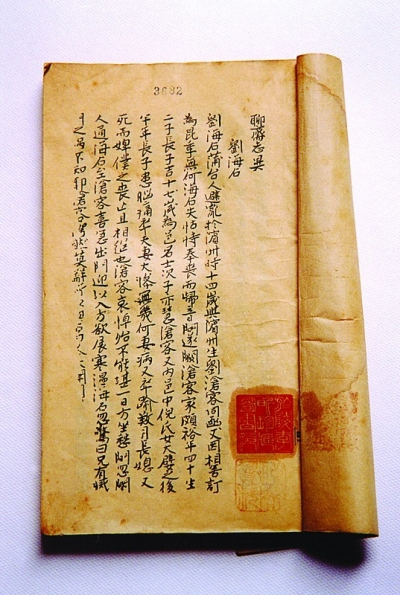 3682
聊齋志異
劉海石
劉海石蒲台人避亂於濱州時十四歲與濱州生劉滄客同函丈因相善訂
為昆季無何海石失怙恃奉喪而歸音問遂闕滄客家頗裕年四十生
二子長子吉十七歲為邑名士次子亦慧滄客又內邑中倪氏女大嬖之後
半年長子患腦痛卒夫妻大慘無幾何妻病又卒踰數月長媳又
死而婢僕之喪亡且相繼也滄客哀悼殆不能堪一日方坐愁間忽閽
人通海石至滄客喜急出門迎以入方欲展寒溫海石忽驚曰兄有滅
門之禍不知耶滄客愕然莫解